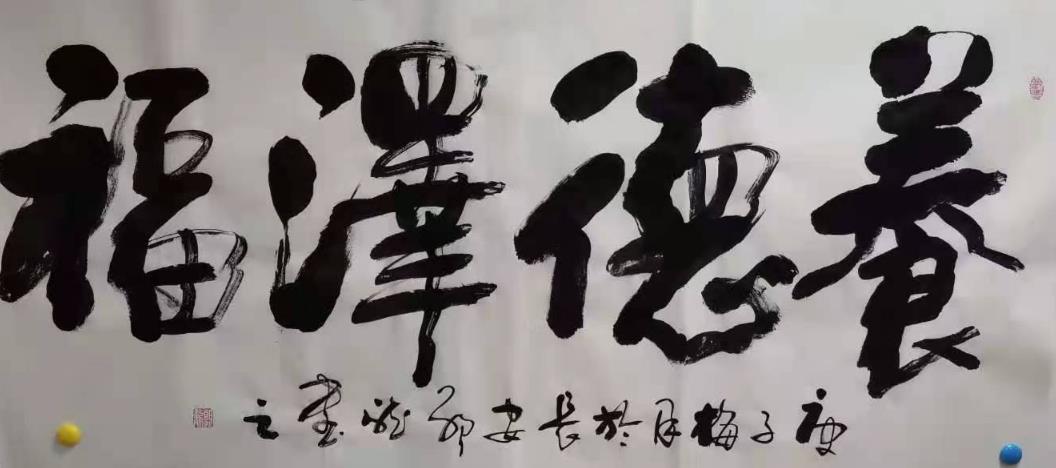 養德澤福
庚子梅月於長安
書之